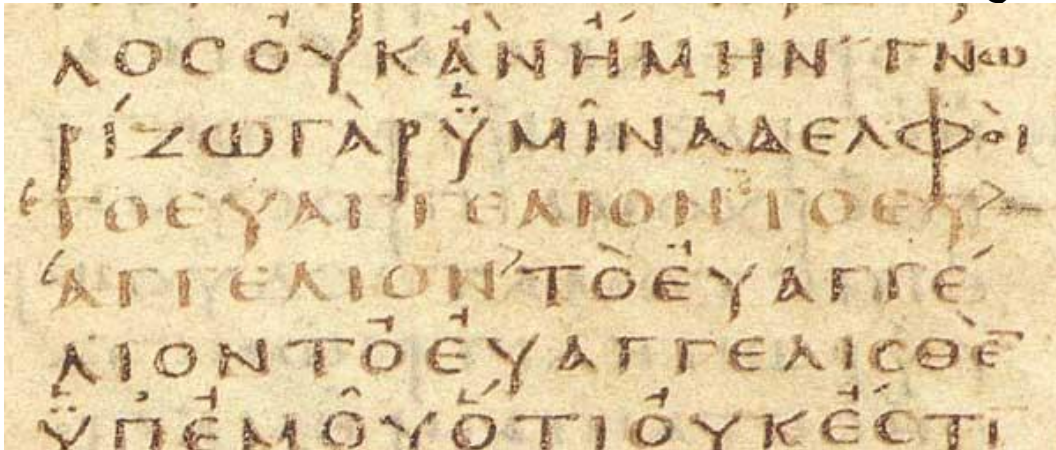 λοσοὐκἂνἤμην γνω
ρίζωγὰρὑμῖνἀδελφὸι
τοευαγγελιοντοευ
αγγελιοντὸεὐαγγέ
λιοντὸἐυαγγελισθὲ
ὑπἐμοῦὅτιὀυκἔστι